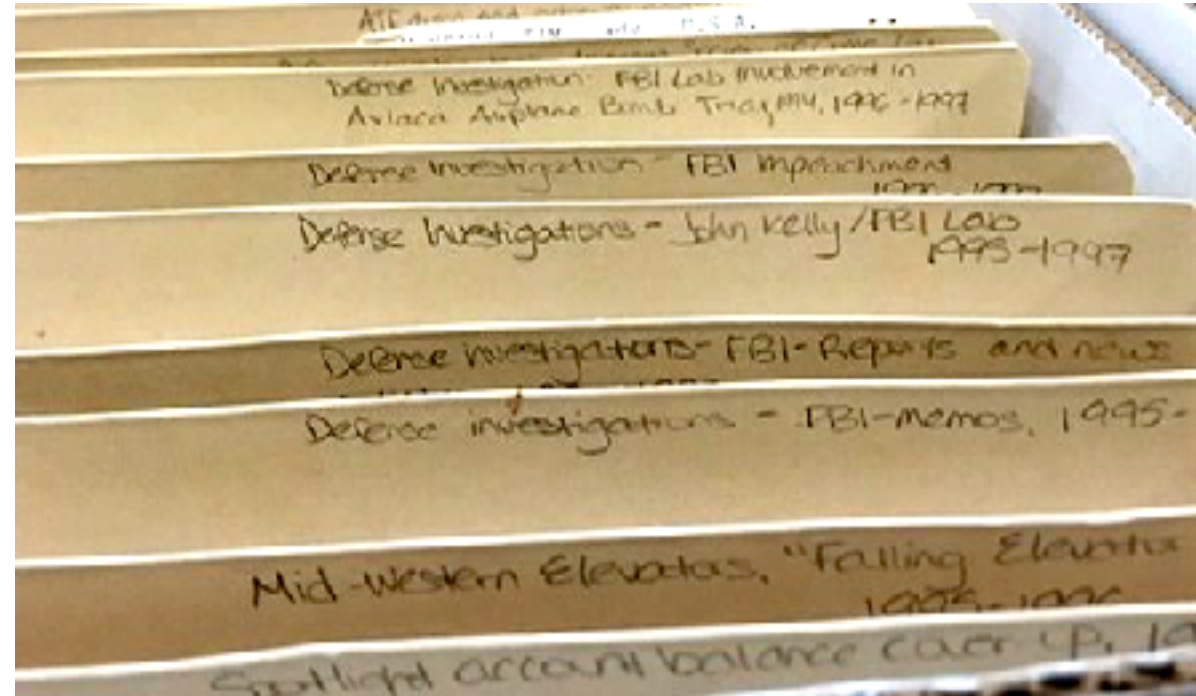 ATF
U.S.A.
Defense Investigation- FBI Lab Involvement in
Avianca Airplane Bomb Trial, 1994, 1996-1997
Defense Investigation - FBI Impeachment
Defense Investigations - John Kelly/FBI Lab
1995-1997
Defense investigations- FBI- Reports and news
Defense investigations - FBI-memos, 1995-
Mid-Western Elevators, "Falling Elevator
1995-1996
Spotlight account balance cover up, 19